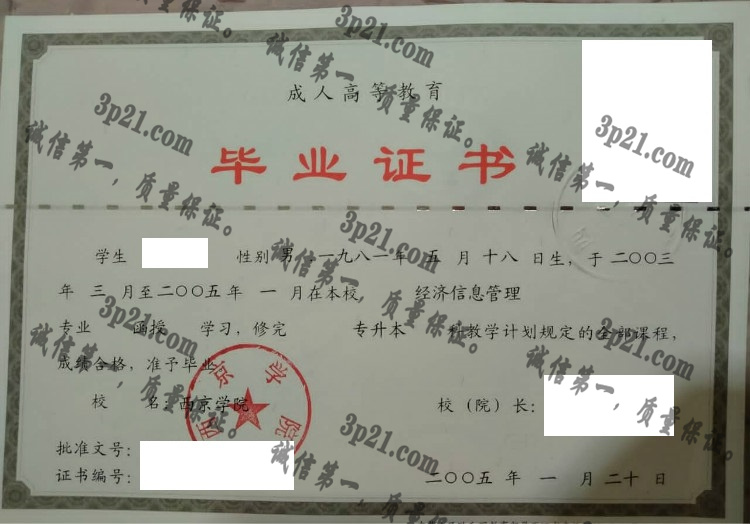 成人高等教育
毕业证书
学生 性别 男 一九八一年 五 月 十八 日生，于 二〇〇三
年 三 月至二〇〇五年 一 月在本校， 经济信息管理
专业 函授 学习，修完 专升本 科教学计划规定的全部课程，
成绩合格，准予毕业
校 名 西京学院
校（院）长：
批准文号：
证书编号：
二〇〇五 年 一 月 二十 日
西京学院
3p21.com
诚信第一，质量保证。
3p21.com
诚信第一，质量保证。
3p21.com
诚信第一，质量保证。
3p21.com
诚信第一，质量保证。
3p21.com
诚信第一，质量保证。
3p21.com
诚信第一，质量保证。
3p21.com
诚信第一，质量保证。